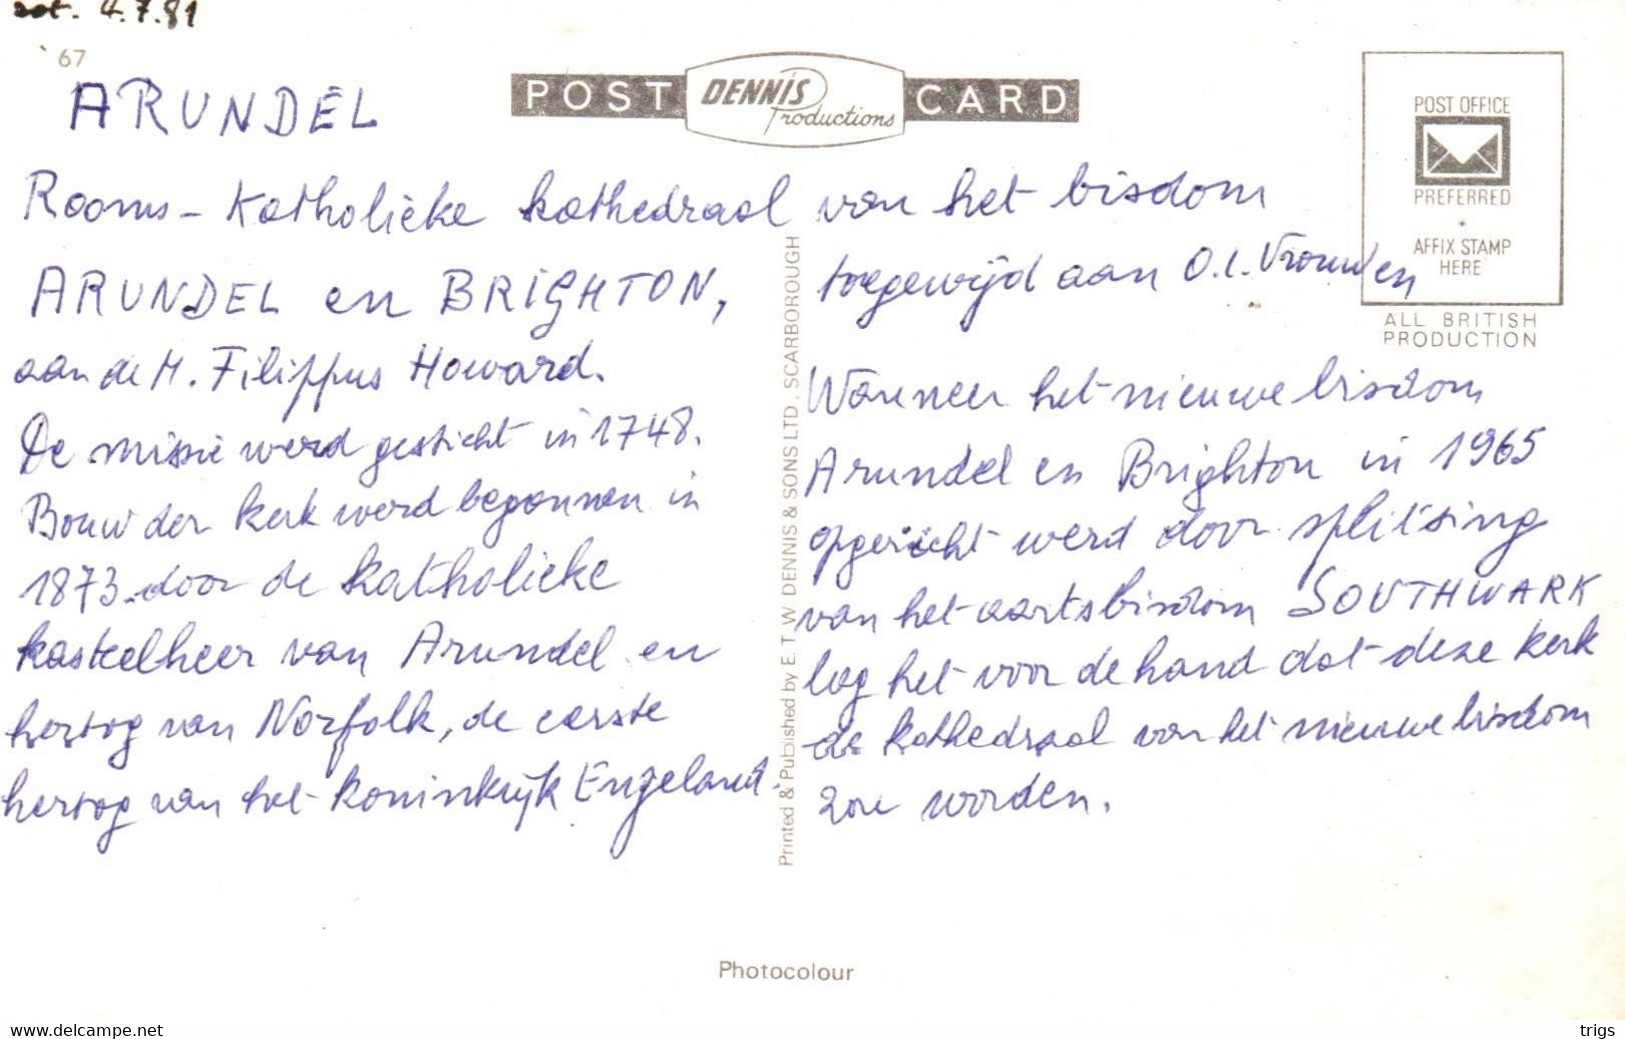 zat. 4.7.81
67
ARUNDEL
POST DENNIS Productions CARD
POST OFFICE
PREFERRED
AFFIX STAMP
HERE
ALL BRITISH
PRODUCTION
Rooms-Katholieke kathedraal van het bisdom
ARUNDEL en BRIGHTON, toegewijd aan O.L. Vrouw en
aan de H. Filippus Howard.
De missie werd gesticht in 1748.
Bouw der kerk werd begonnen in
1873 door de katholieke
kasteelheer van Arundel en
hertog van Norfolk, de eerste
hertog van het koninkrijk Engeland.
Wanneer het nieuwe bisdom
Arundel en Brighton in 1965
opgericht werd door splitsing
van het aartsbisdom SOUTHWARK
lag het voor de hand dat deze kerk
de kathedraal van het nieuwe bisdom
zou worden.
Printed & Published by E. T. W. DENNIS & SONS LTD., SCARBOROUGH
Photocolour
www.delcampe.net
trigs